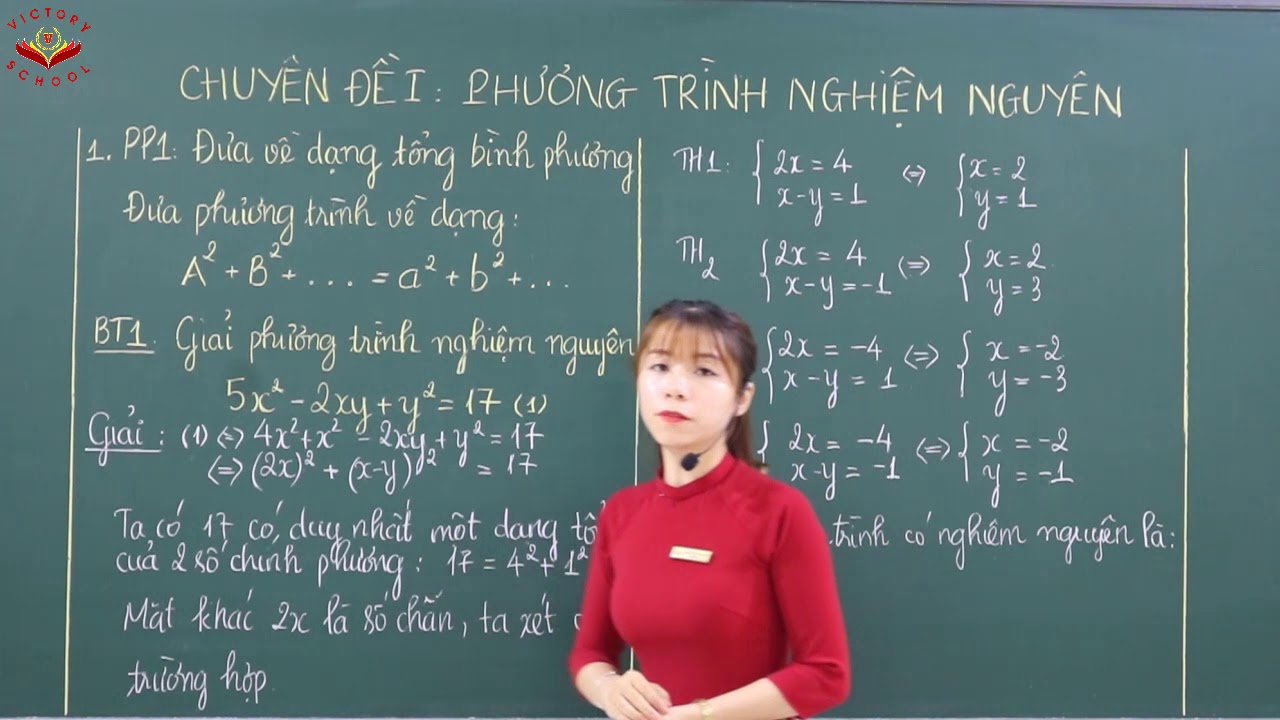 VICTORY
SCHOOL
CHUYÊN ĐỀ I: PHƯƠNG TRÌNH NGHIỆM NGUYÊN
1. PP1: Đưa về dạng tổng bình phương
Đưa phương trình về dạng:
A² + B² + ... = a² + b² + ...
BT1. Giải phương trình nghiệm nguyên
5x² - 2xy + y² = 17 (1)
Giải: (1) ⇔ 4x² + x² - 2xy + y² = 17
⇔ (2x)² + (x-y)² = 17
Ta có 17 có duy nhất một dạng
của 2 số chính phương: 17 = 4² + 1²
Mặt khác 2x là số chẵn, ta xét
trường hợp
TH1: { 2x = 4 ⇔ { x = 2
x-y = 1 y = 1
TH2 { 2x = 4 ⇔ { x = 2
x-y = -1 y = 3
{ 2x = -4 ⇔ { x = -2
x-y = 1 y = -3
{ 2x = -4 ⇔ { x = -2
x-y = -1 y = -1
trình có nghiệm nguyên là: